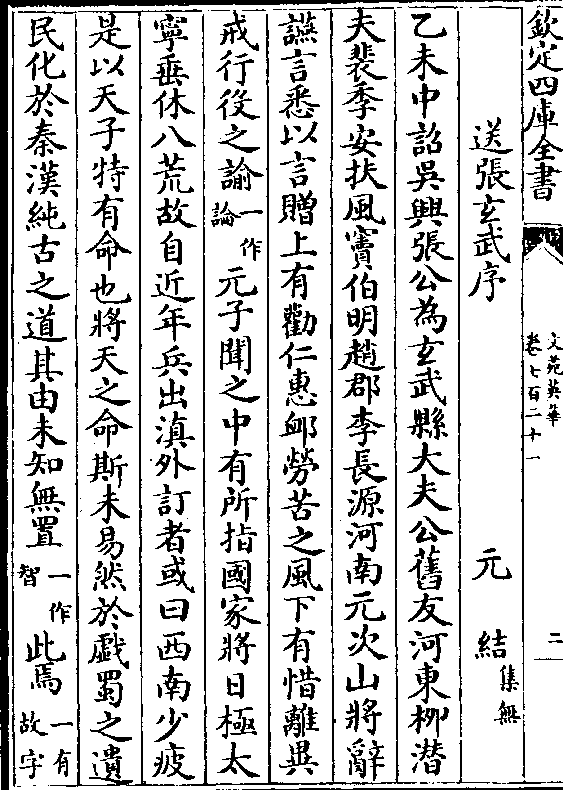 欽定四庫全書
文苑英華
卷七百二十一
二
送張玄武序
元結
集無
乙未中詔吳興張公為玄武縣大夫公舊友河東柳潜
夫裴季安扶風竇伯明趙郡李長源河南元次山將辭
讌言悉以言贈上有勸仁惠䘏勞苦之風下有惜離異
戒行役之諭一作論元子聞之中有所指國家將日極太
寧垂休八荒故自近年兵出滇外訂者或曰西南少疲
是以天子特有命也將天之命斯未易然於戲蜀之遺
民化於秦漢純古之道其由未知無置一作智此焉一有故字